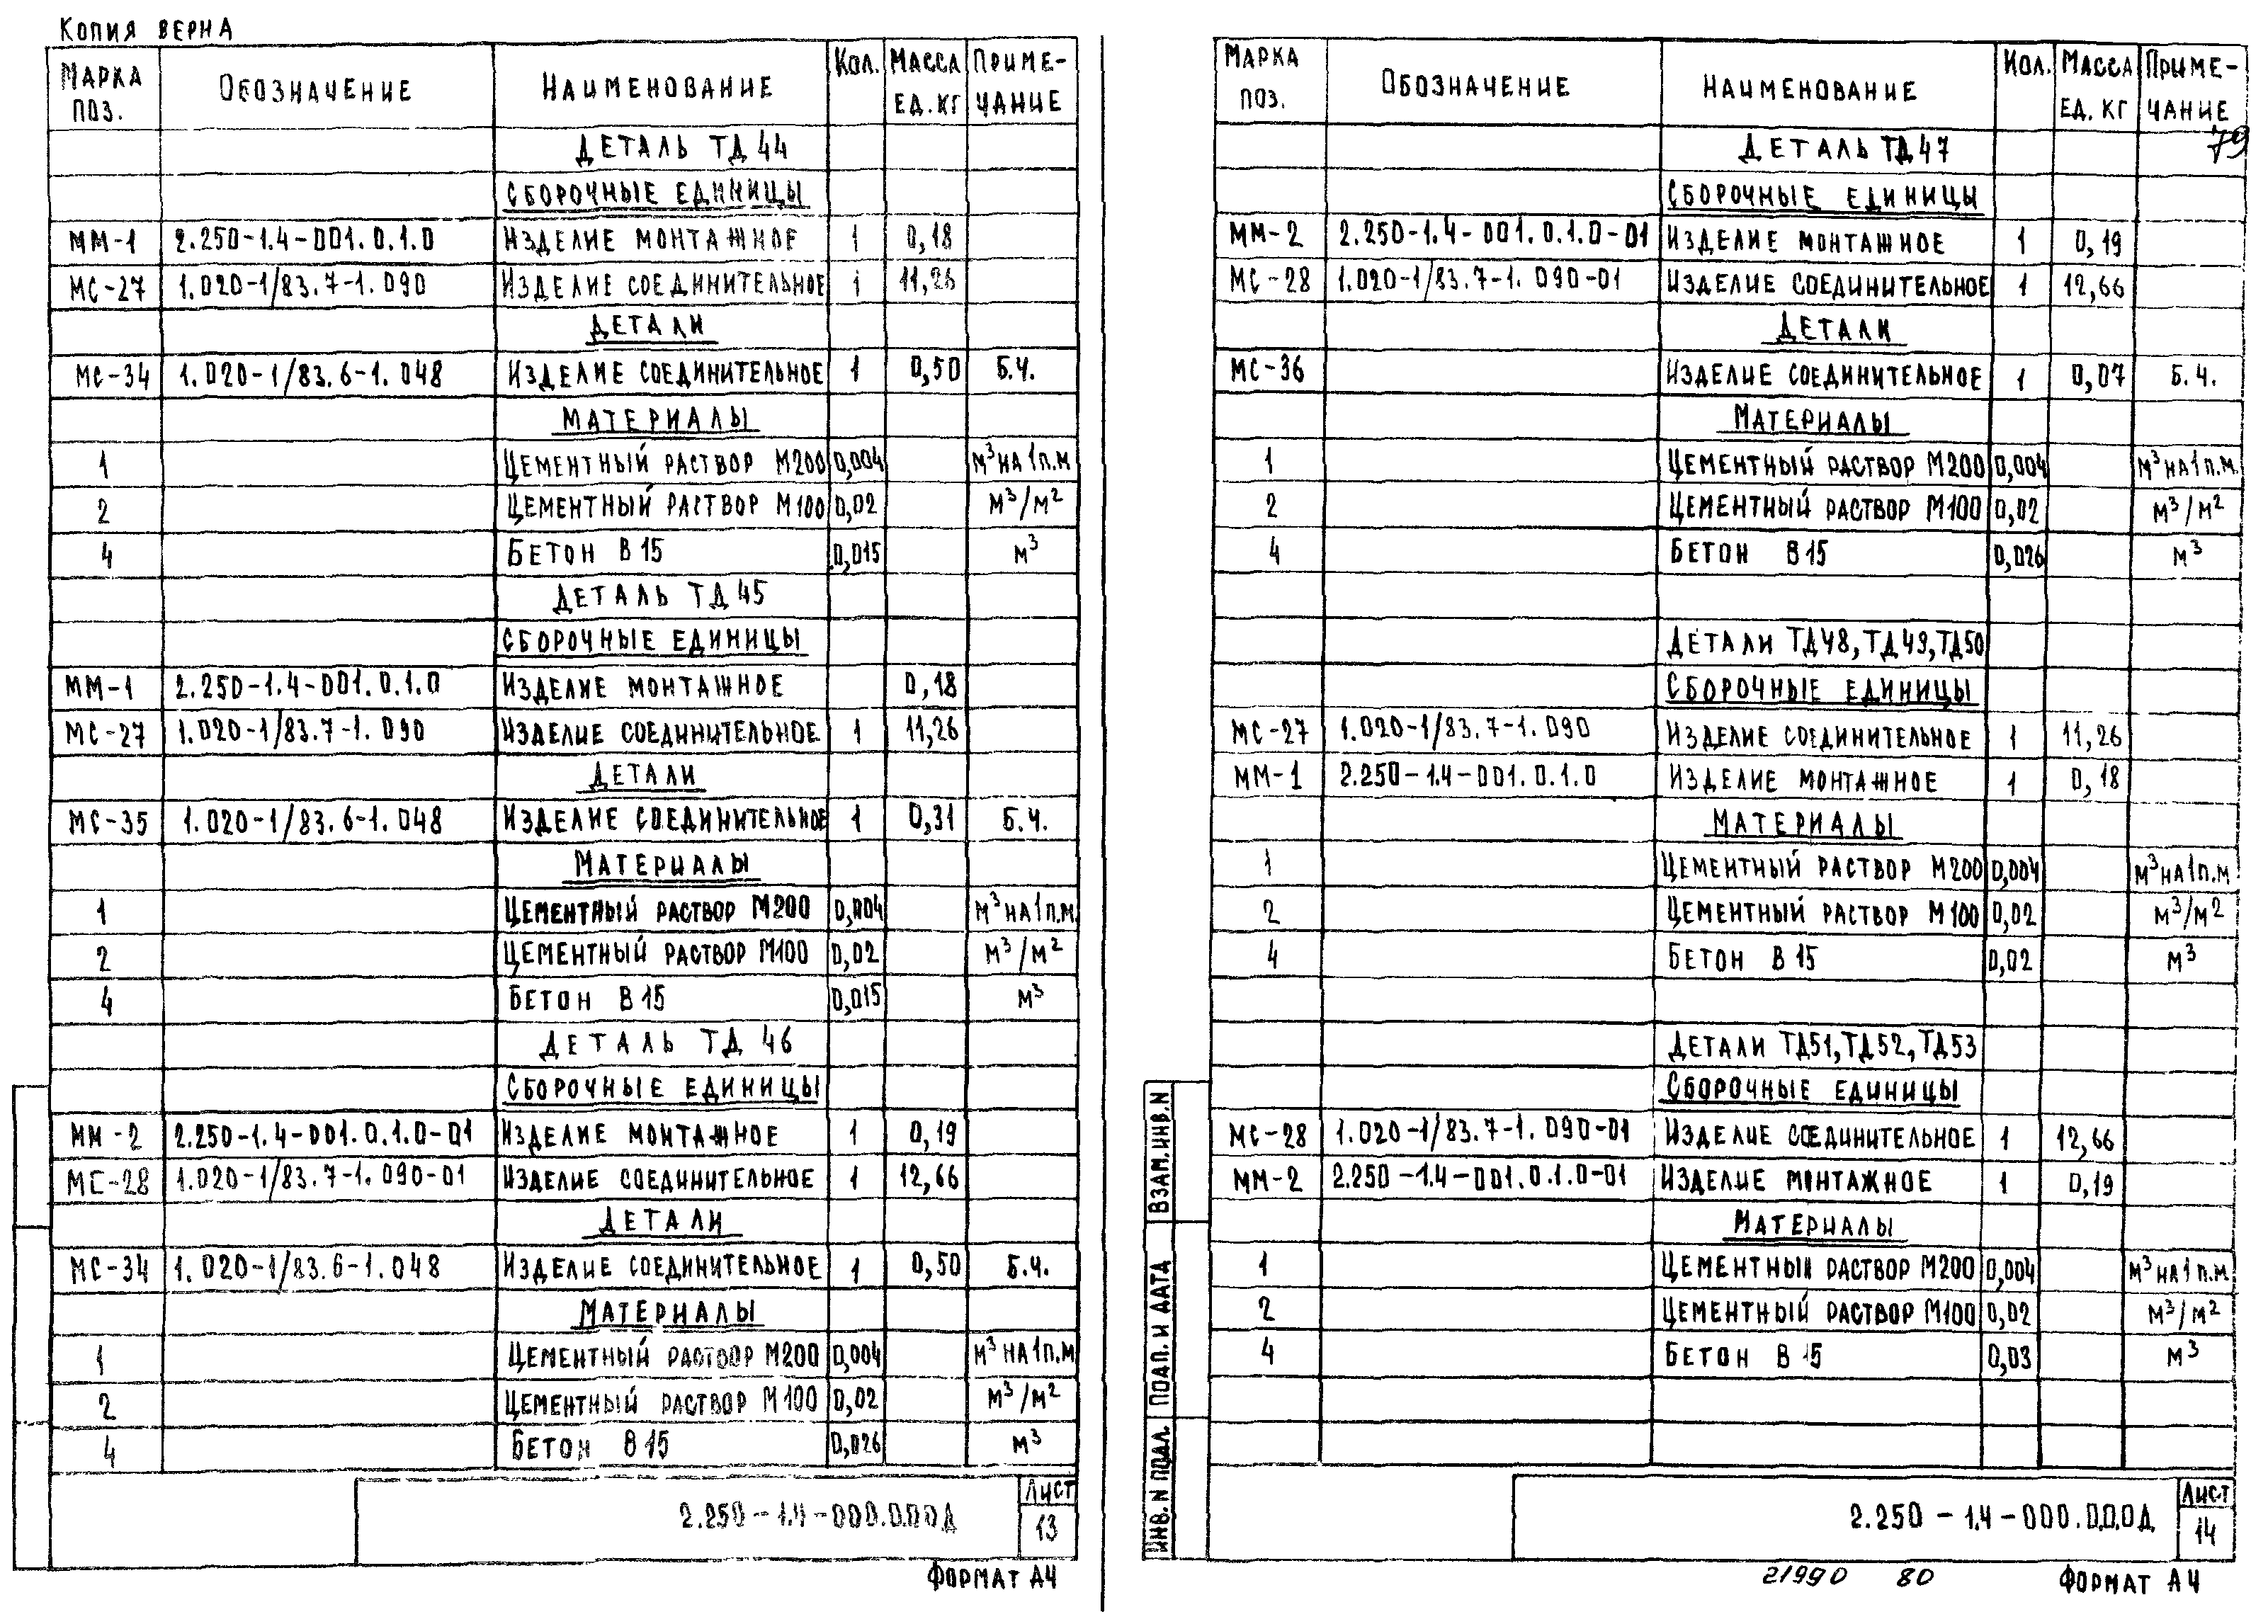 Копия верна
Марка поз. Обозначение Наименование Кол. Масса ед. кг Примечание
Деталь ТД 44
Сборочные единицы
ММ-1 2.250-1.4-001.0.1.0 Изделие монтажное 1 0,18
МС-27 1.020-1/83.7-1.090 Изделие соединительное 1 11,26
Детали
МС-34 1.020-1/83.6-1.048 Изделие соединительное 1 0,50 Б.ч.
Материалы
1 Цементный раствор М200 0,004 м³ на 1 п.м
2 Цементный раствор М100 0,02 м³/м²
4 Бетон В15 0,015 м³
Деталь ТД 45
Сборочные единицы
ММ-1 2.250-1.4-001.0.1.0 Изделие монтажное 0,18
МС-27 1.020-1/83.7-1.090 Изделие соединительное 1 11,26
Детали
МС-35 1.020-1/83.6-1.048 Изделие соединительное 1 0,31 Б.ч.
Материалы
1 Цементный раствор М200 0,004 м³ на 1 п.м
2 Цементный раствор М100 0,02 м³/м²
4 Бетон В15 0,015 м³
Деталь ТД 46
Сборочные единицы
ММ-2 2.250-1.4-001.0.1.0-01 Изделие монтажное 1 0,19
МС-28 1.020-1/83.7-1.090-01 Изделие соединительное 1 12,66
Детали
МС-34 1.020-1/83.6-1.048 Изделие соединительное 1 0,50 Б.ч.
Материалы
1 Цементный раствор М200 0,004 м³ на 1 п.м
2 Цементный раствор М100 0,02 м³/м²
4 Бетон В15 0,026 м³
2.250-1.4-000.0.0.0Д Лист 13
Формат А4
Марка поз. Обозначение Наименование Кол. Масса ед. кг Примечание
79
Деталь ТД 47
Сборочные единицы
ММ-2 2.250-1.4-001.0.1.0-01 Изделие монтажное 1 0,19
МС-28 1.020-1/83.7-1.090-01 Изделие соединительное 1 12,66
Детали
МС-36 Изделие соединительное 1 0,07 Б.ч.
Материалы
1 Цементный раствор М200 0,004 м³ на 1 п.м.
2 Цементный раствор М100 0,02 м³/м²
4 Бетон В15 0,026 м³
Детали ТД48, ТД49, ТД50
Сборочные единицы
МС-27 1.020-1/83.7-1.090 Изделие соединительное 1 11,26
ММ-1 2.250-1.4-001.0.1.0 Изделие монтажное 1 0,18
Материалы
1 Цементный раствор М200 0,004 м³ на 1 п.м
2 Цементный раствор М100 0,02 м³/м²
4 Бетон В15 0,02 м³
Детали ТД51, ТД52, ТД53
Сборочные единицы
МС-28 1.020-1/83.7-1.090-01 Изделие соединительное 1 12,66
ММ-2 2.250-1.4-001.0.1.0-01 Изделие монтажное 1 0,19
Материалы
1 Цементный раствор М200 0,004 м³ на 1 п.м
2 Цементный раствор М100 0,02 м³/м²
4 Бетон В15 0,03 м³
Взам.инв.N
Подп. и дата
Инв.N подл.
2.250-1.4-000.0.0.0Д Лист 14
21990 80 Формат А4